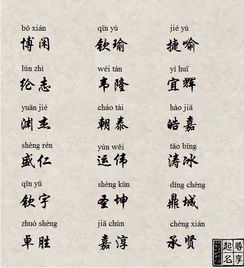 bó xián qīn yú jié yù
博闲 钦瑜 捷喻
lún zhì wéi tán yí huī
纶志 韦隆 宜辉
yuān jié cháo tài hào jiā
渊杰 朝泰 皓嘉
shèng rén yùn wěi tāo bīng
盛仁 运伟 涛冰
qīn yǔ shèng kūn dǐng chéng
钦宇 圣坤 鼎城
zhuó shèng jiā chún chéng xián
卓胜 嘉淳 承贤
起名